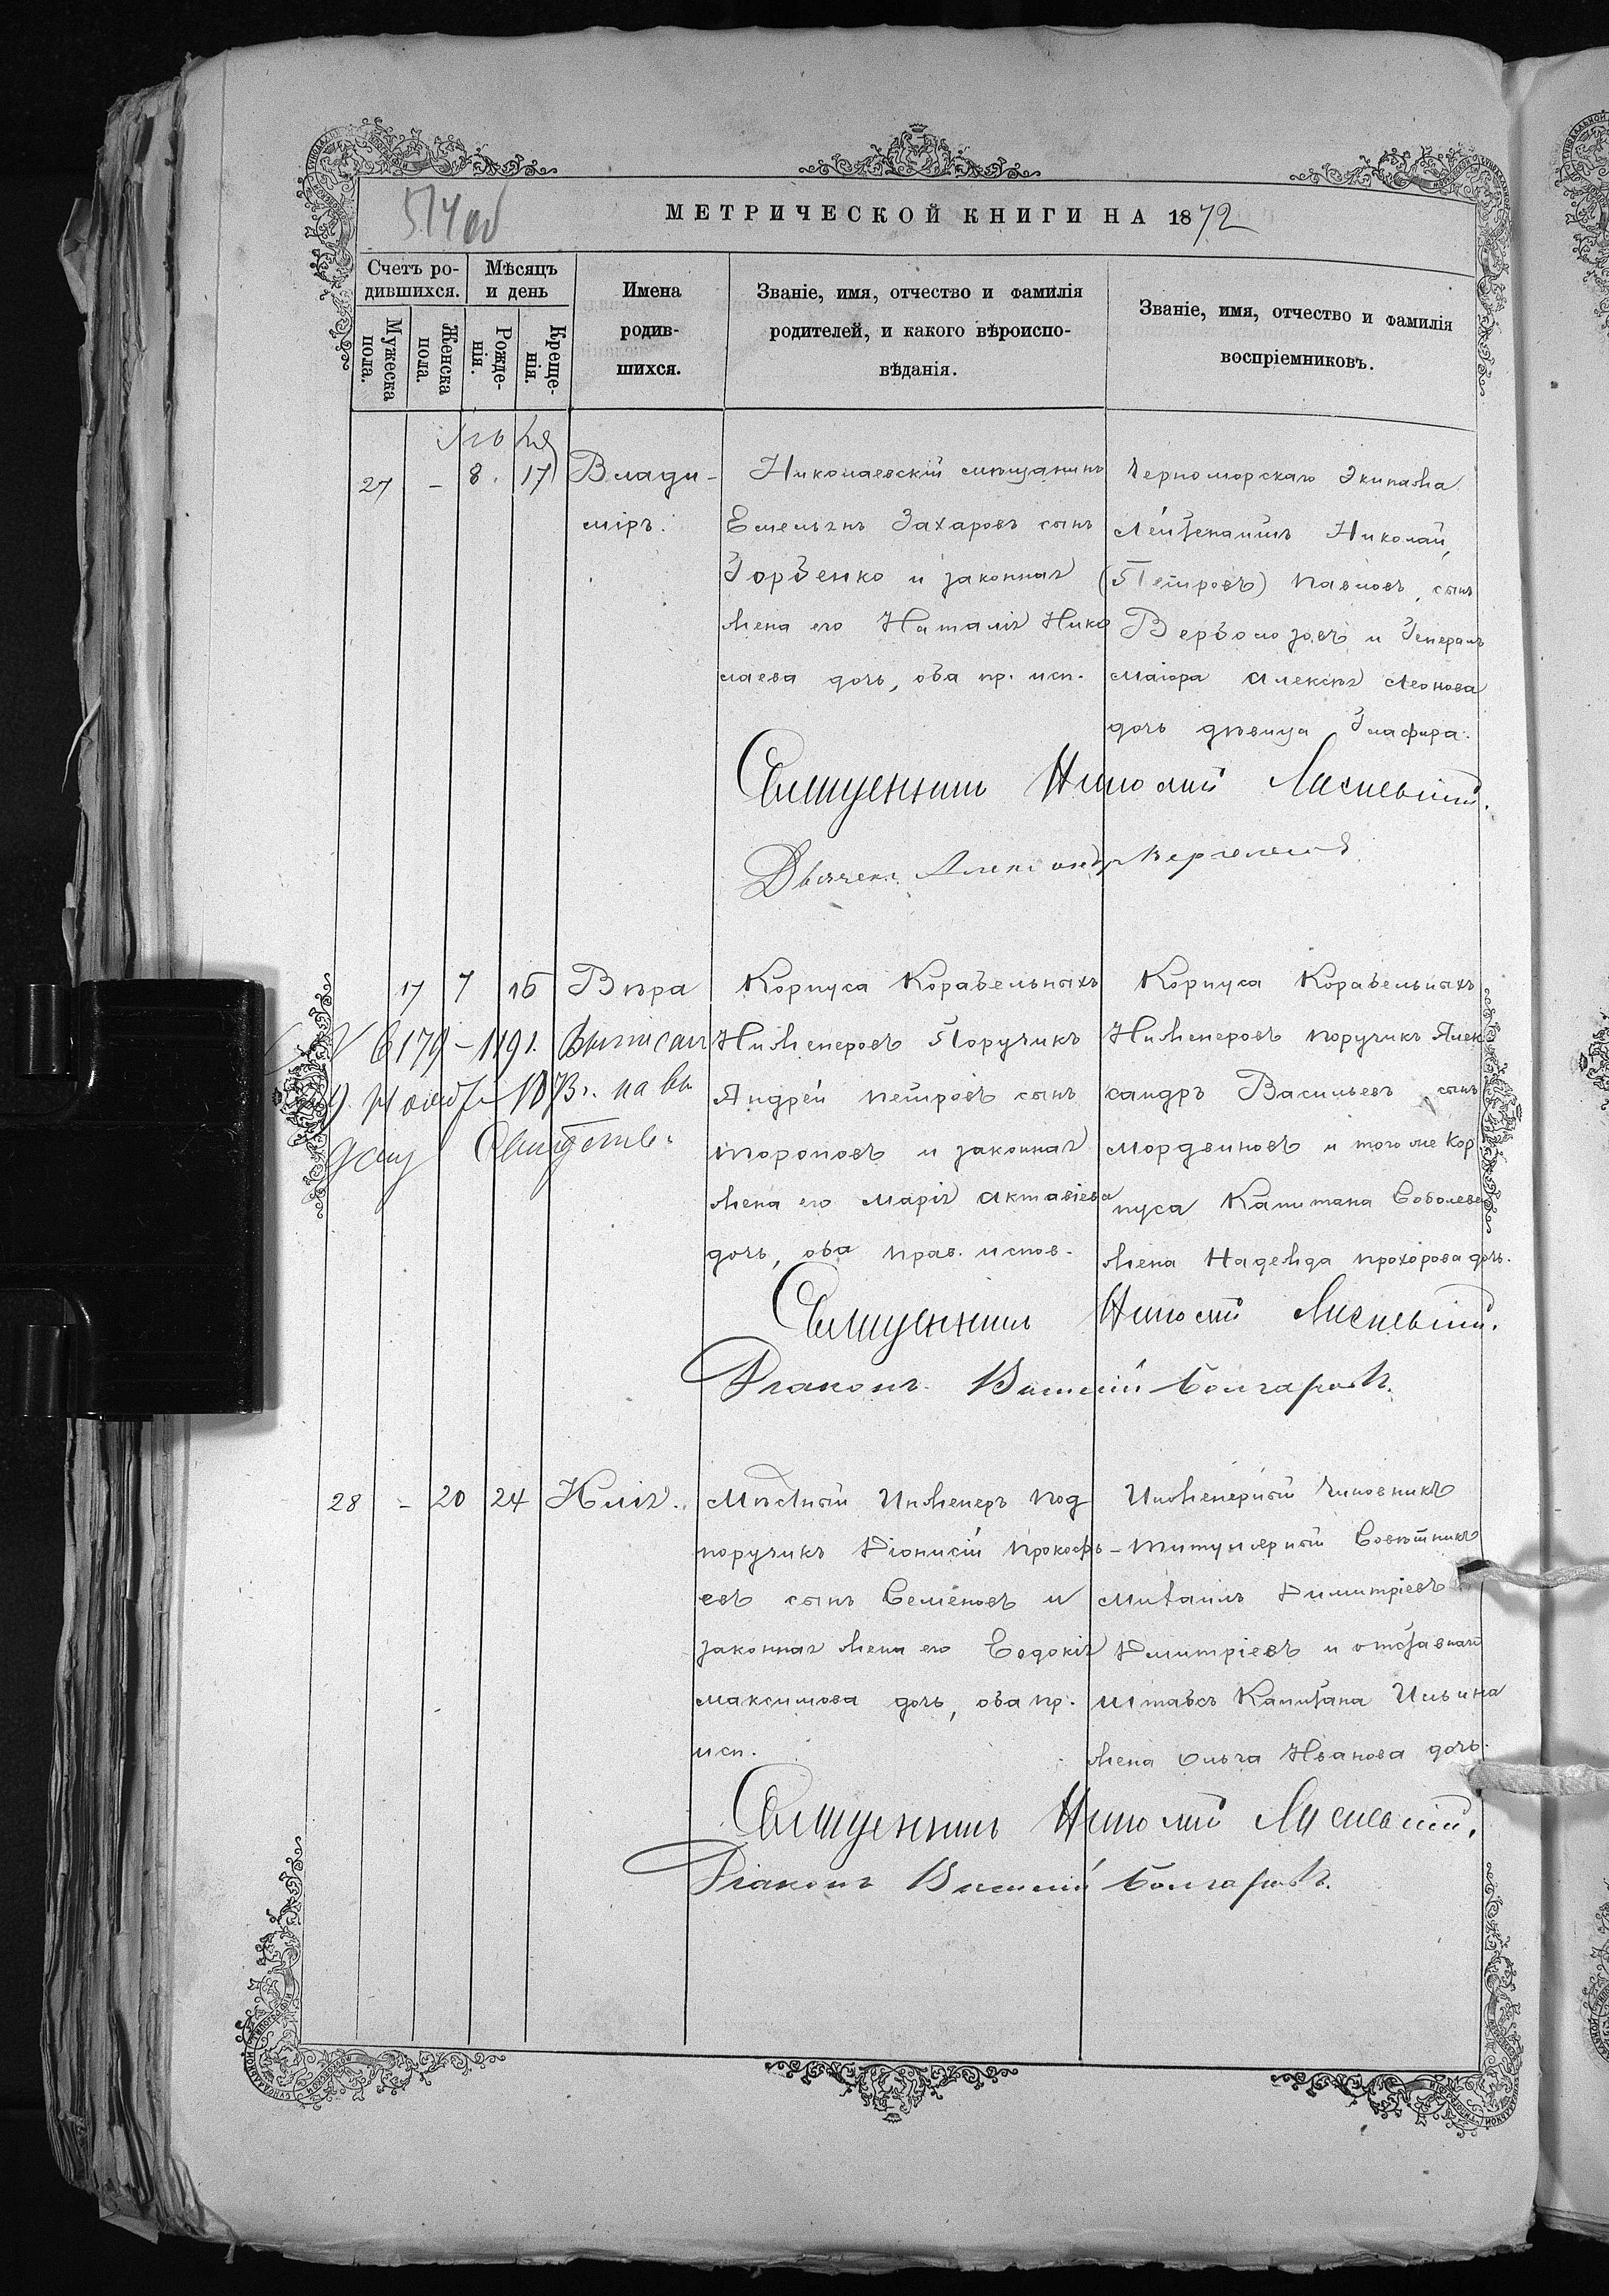 514 об
МЕТРИЧЕСКОЙ КНИГИ НА 1872
Счетъ ро-
дившихся.
Мѣсяцъ
и день
Мужеска
пола.
Женска
пола.
Рожде-
нія.
Креще-
нія.
Имена
родив-
шихся.
Званіе, имя, отчество и фамилія
родителей, и какого вѣроиспо-
вѣданія.
Званіе, имя, отчество и фамилія
воспріемниковъ.
27 - 8. 17 Влади-
міръ.
Николаевскій мѣщанинъ
Емельянъ Захаровъ сынъ
Горбенко и законная
жена его Наталія Нико
лаева дочь, оба пр. исп.
Черноморскаго Экипажа
Лейтенантъ Николай
(Петровъ) Павловъ, сынъ
Верболозовъ и Генералъ
маіора Алексѣя Леонова
дочь дѣвица Глафира.
Священникъ Николай
Александръ
17 7 16 Вѣра
Корпуса Корабельныхъ
Инженеровъ Поручикъ
Андрей Петровъ сынъ
Тороповъ и законная
жена его Марія Актавіева
дочь, оба прав. испов.
Корпуса Корабельныхъ
Инженеровъ поручикъ Алек
сандръ Васильевъ сынъ
Мордвиновъ и того же Кор
пуса Капитана Соболева
жена Надежда Прохорова дочь.
№ 6179 - 1191. Выписан
1873 г. на вы
дачу Свидѣтельс
Священникъ Николай
Діаконъ Василій Болгаровъ.
28 - 20 24 Юлія.
Мѣстный Инженеръ Под
поручикъ Діонисій Прокофь-
евъ сынъ Семеновъ и
законная жена его Евдокія
Максимова дочь, оба пр.
исп.
Инженерный Чиновникъ
Титулярный Совѣтникъ
Михаилъ Димитріевъ
Дмитріевъ и отставнаго
Штабсъ Капитана Ильина
жена Ольга Иванова дочь.
Священникъ Николай
Діаконъ Василій Болгаровъ.